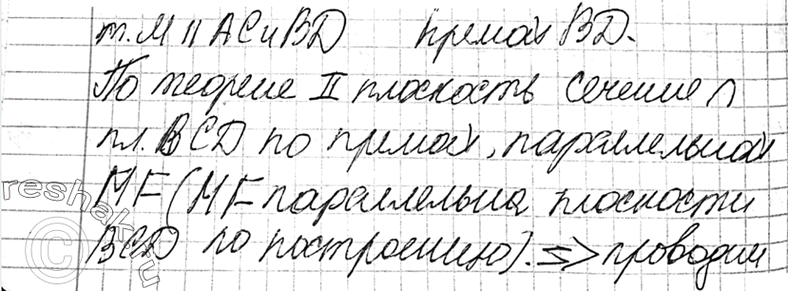 т. М || AC и BD прямая BD.
По теореме II плоскость сечение ∩
пл. BCD по прямой, параллельной
MF (MF параллельна плоскости
BCD по построению). => проводим
reshak.ru